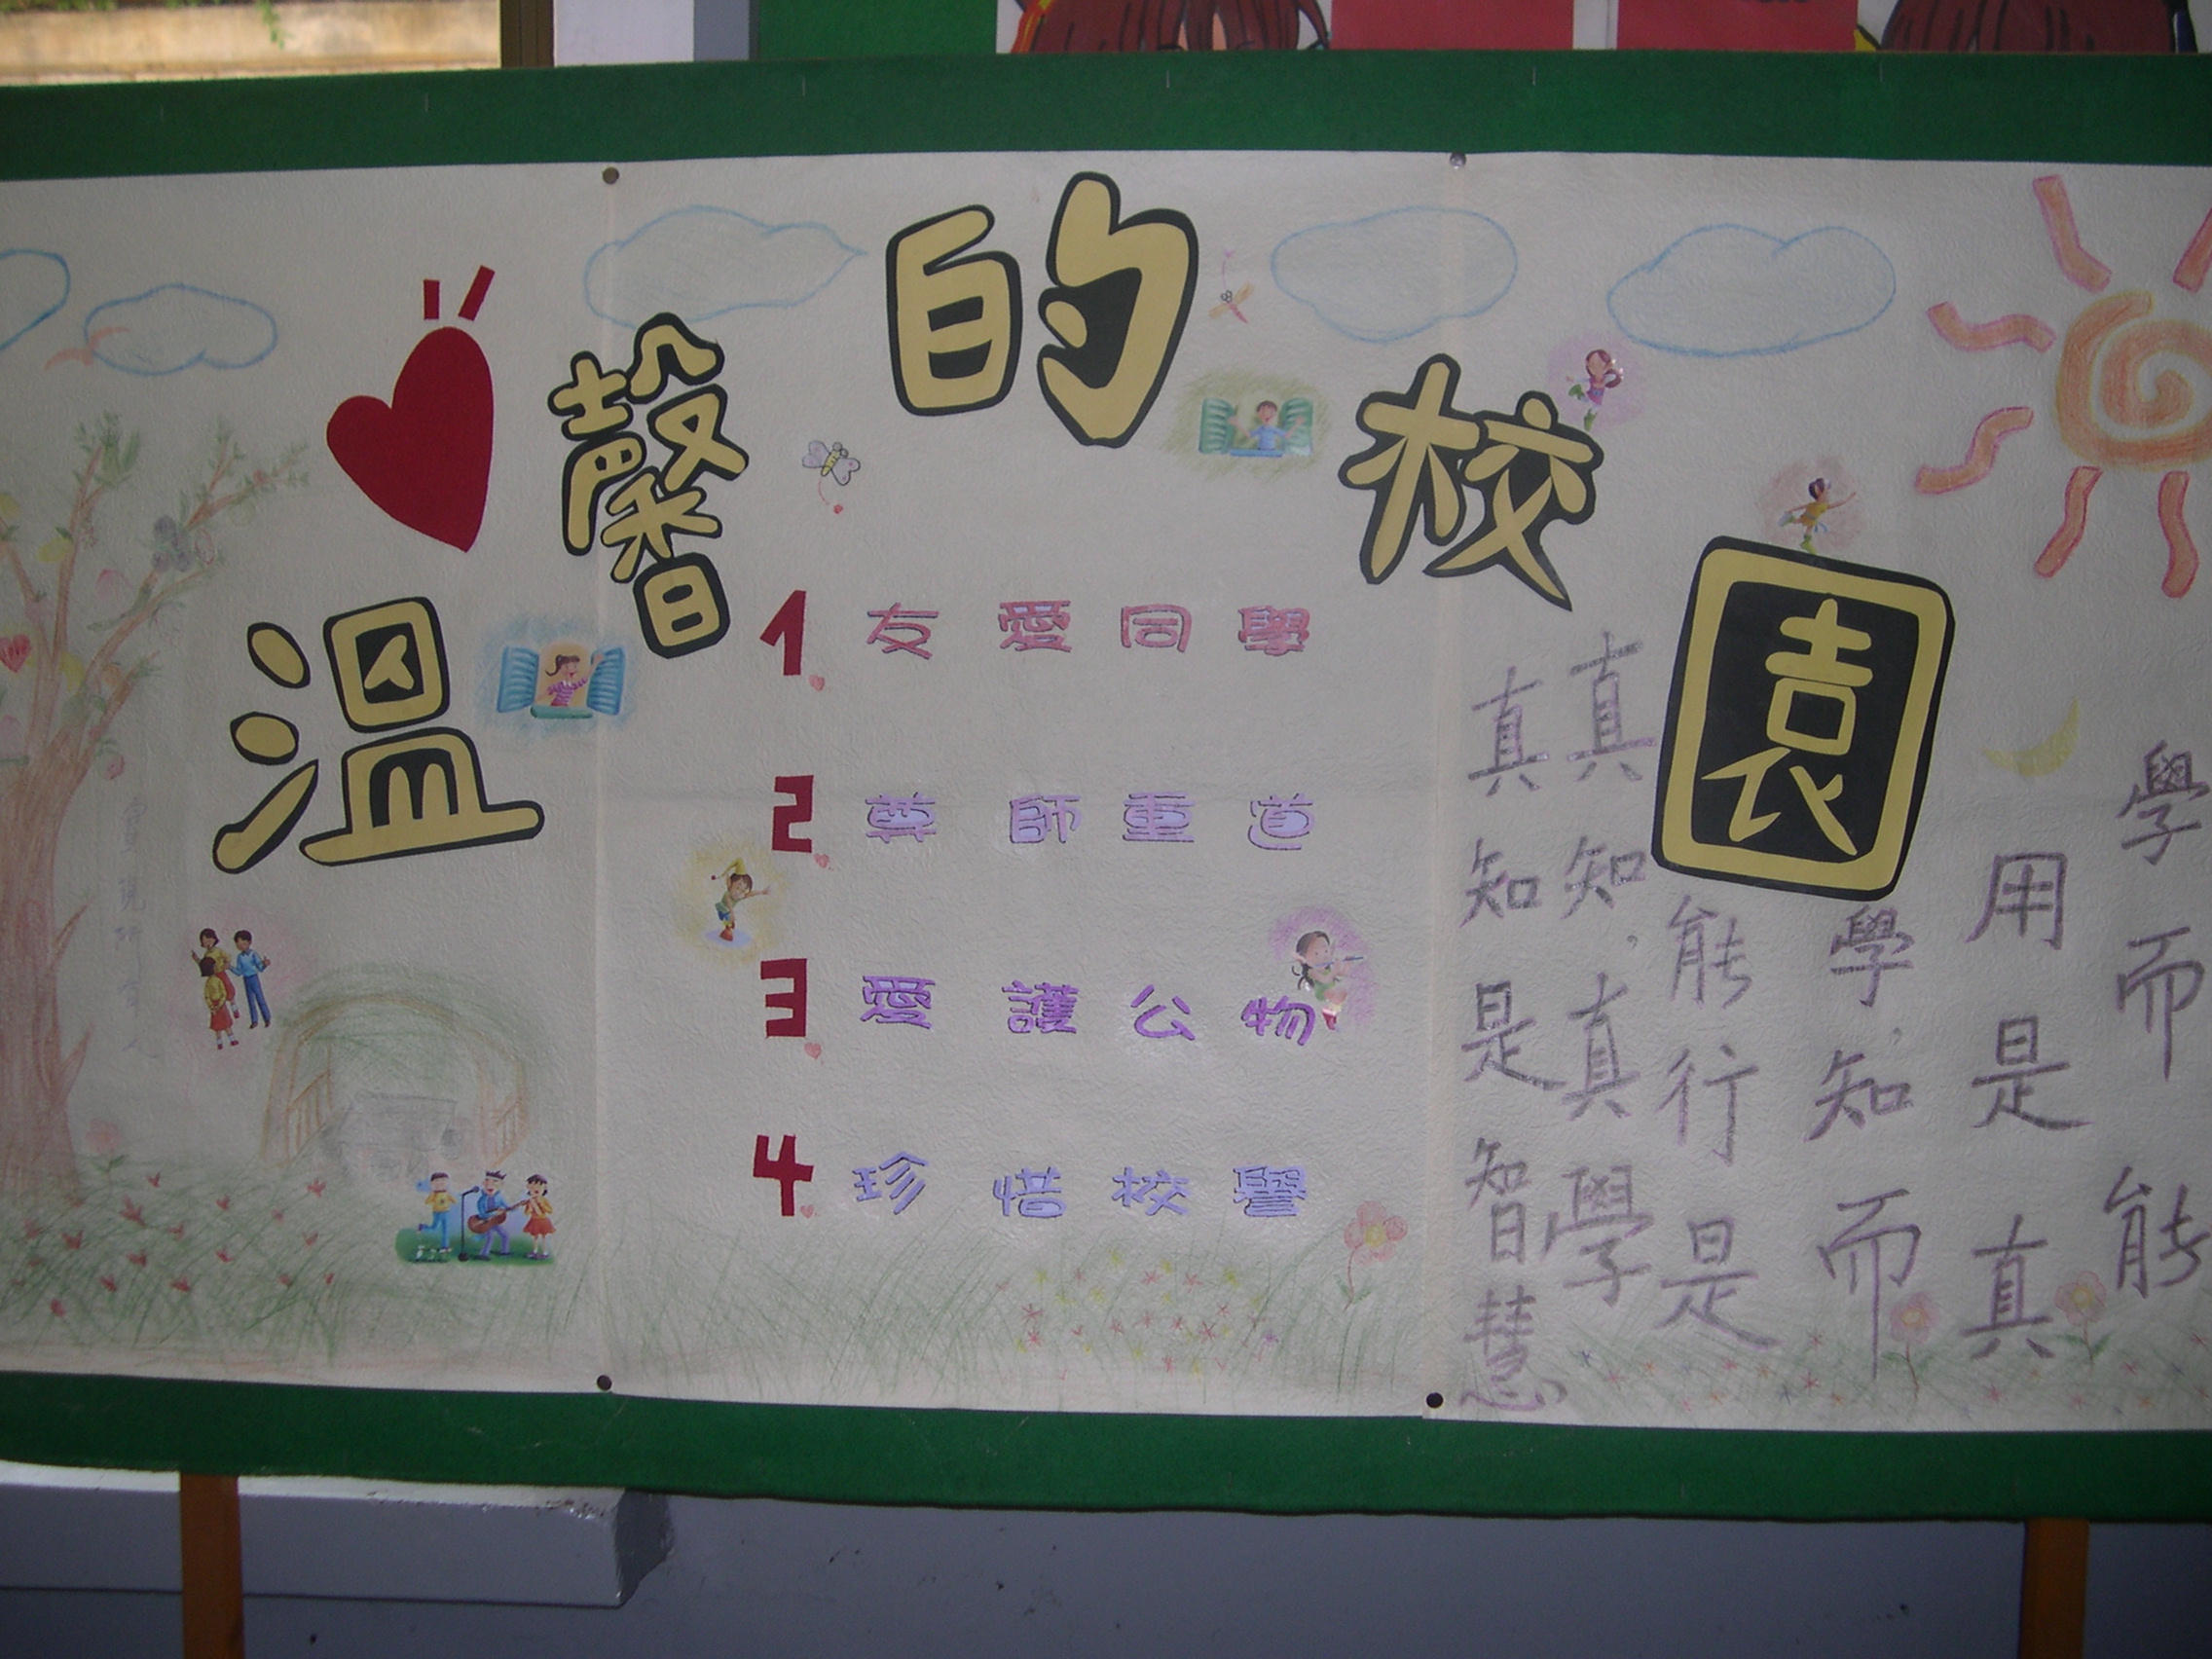 溫馨的校園
1 友愛同學
2 尊師重道
3 愛護公物
4 珍惜校譽
學而能
用是真
學,知而
能行是
真知,真學
真知是智慧